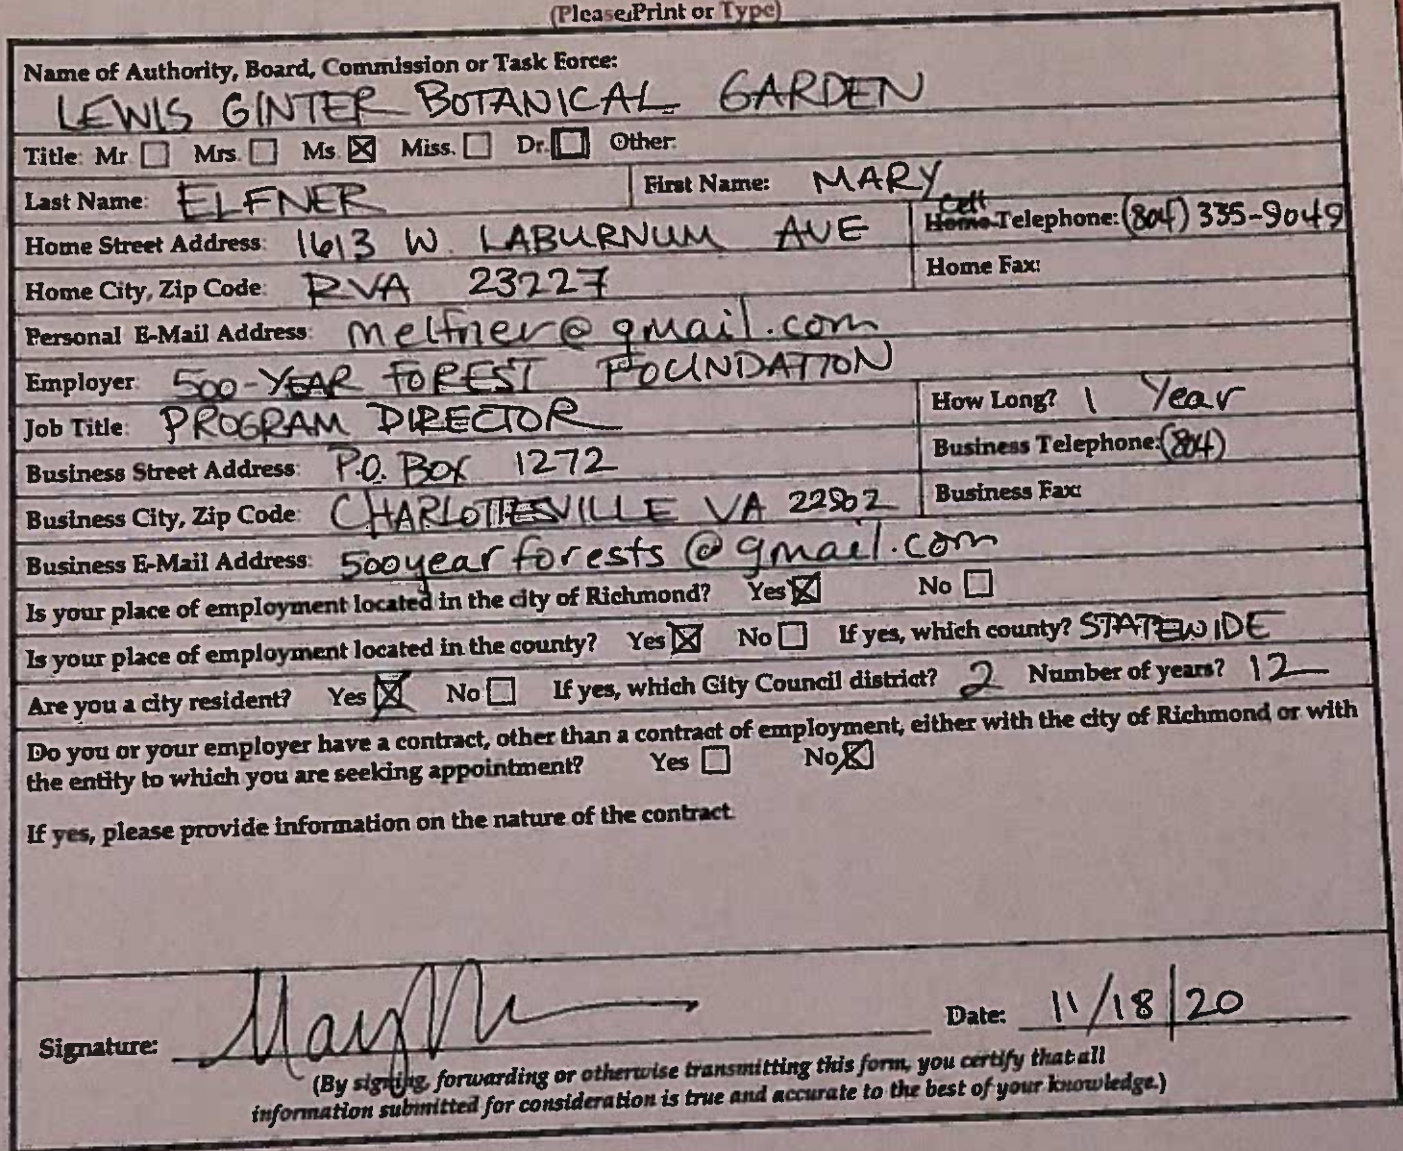 (Please Print or Type)
Name of Authority, Board, Commission or Task Force:
LEWIS GINTER BOTANICAL GARDEN
Title: Mr. Mrs. Ms. Miss. Dr. Other:
Last Name: ELFNER First Name: MARY
Home Street Address: 1613 W. LABURNUM AVE Home Cell Telephone: (804) 335-9049
Home City, Zip Code: RVA 23227 Home Fax:
Personal E-Mail Address: melfner@gmail.com
Employer: 500-YEAR FOREST FOUNDATION
Job Title: PROGRAM DIRECTOR How Long? 1 Year
Business Street Address: P.O. Box 1272 Business Telephone: (804)
Business City, Zip Code: CHARLOTTESVILLE VA 22902 Business Fax:
Business E-Mail Address: 500yearforests@gmail.com
Is your place of employment located in the city of Richmond? Yes No
Is your place of employment located in the county? Yes No If yes, which county? STATEWIDE
Are you a city resident? Yes No If yes, which City Council district? 2 Number of years? 12
Do you or your employer have a contract, other than a contract of employment, either with the city of Richmond or with
the entity to which you are seeking appointment? Yes No
If yes, please provide information on the nature of the contract.
Signature: Mary Date: 11/18/20
(By signing, forwarding or otherwise transmitting this form, you certify that all
information submitted for consideration is true and accurate to the best of your knowledge.)